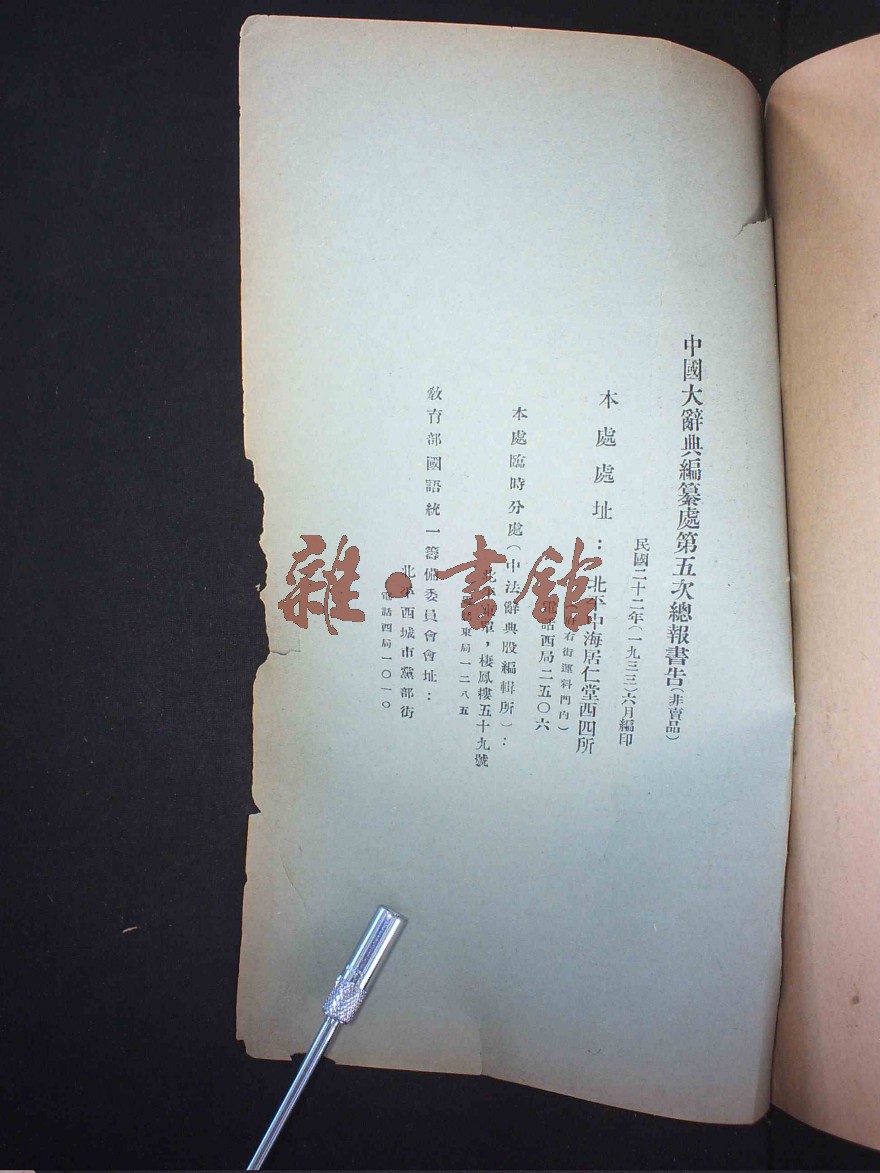 中國大辭典編纂處第五次總報書告(非賣品)
民國二十二年(一九三三)六月編印
本處處址:北平中海居仁堂西四所
右街運料門內)
電話西局二五〇六
本處臨時分處(中法辭典股編輯所):
北平東單,棲鳳樓五十九號
電話東局一二八五
教育部國語統一籌備委員會會址:
北平西城市黨部街
電話西局一〇一〇
雜·書館